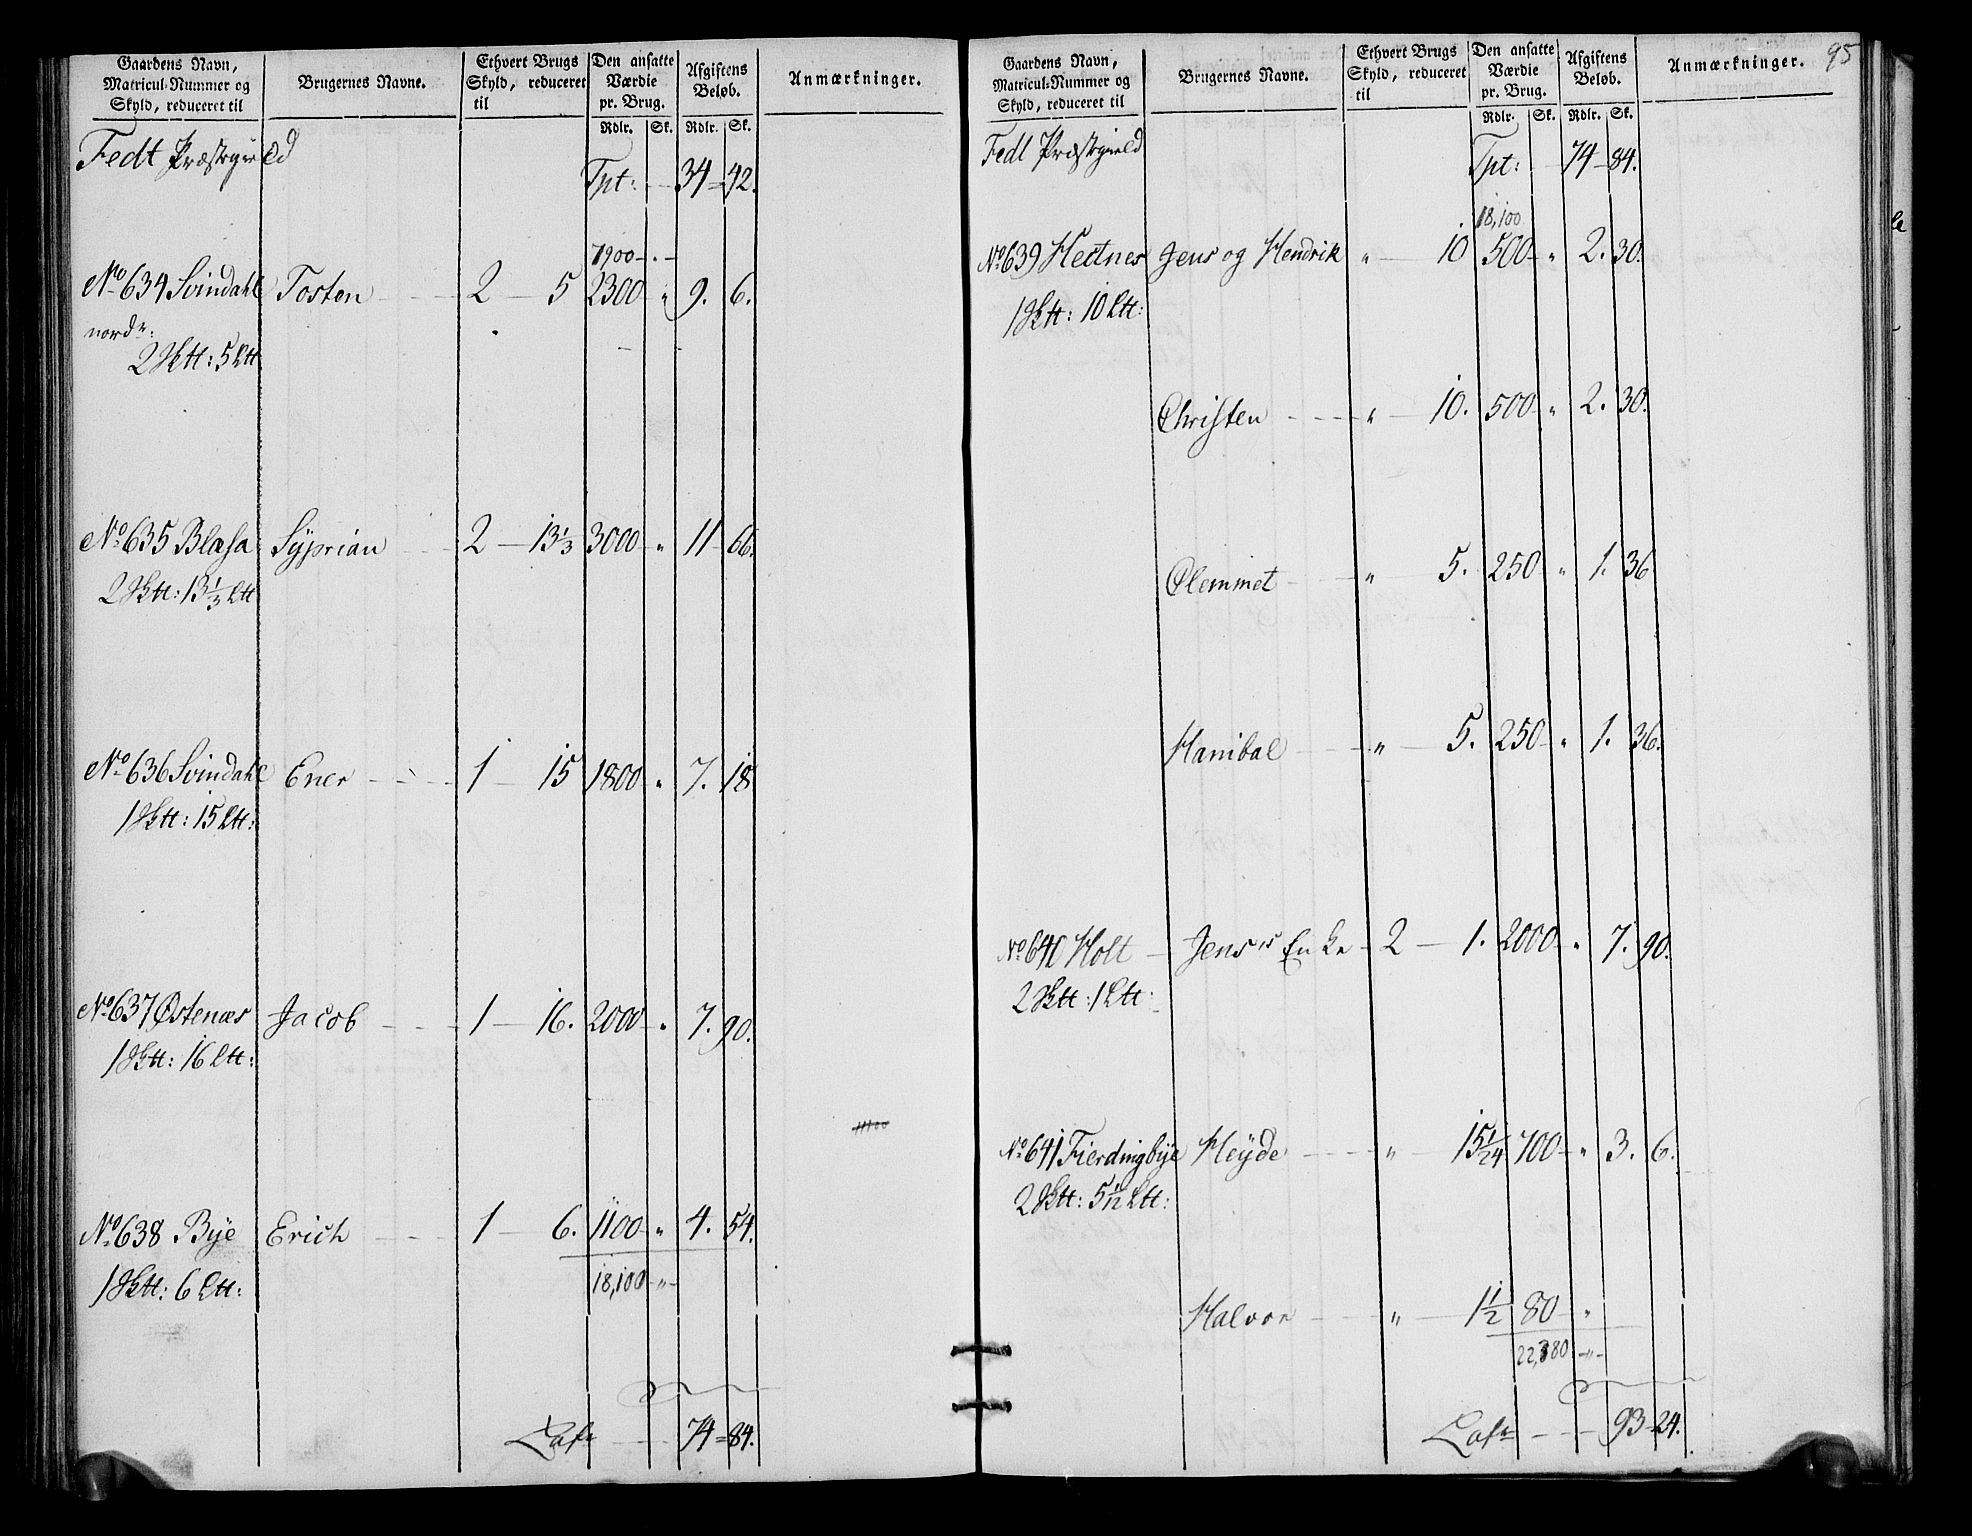 Gaardens Navn, Matricul-Nummer og Skyld, reduceret til | Brugernes Navne. | Ethvert Brugs Skyld, reduceret til | Den ansatte Værdie pr. Brug. Rdlr. Sk. | Afgiftens Beløb. Rdlr. Sk. | Anmærkninger.
Fedt Præstegield
Tpt: 34 = 42.
7900 - . -
No 634 Svindahl Tosten 2 - 5 2300 " 9. 6.
nordr:
2 Sktt: 5 Ltt
No 635 Blasa Syprian 2 - 13 1/3 3000 " 11 66.
2 Sktt: 13 1/3 Ltt
No 636 Svindahl Ener 1 - 15 1800 " 7. 18
1 Sktt: 15 Ltt:
No 637 Østenæs Jacob 1 - 16. 2000 " 7. 90.
1 Sktt: 16 Ltt:
11100
No 638 Bye Erich 1 - 6. 1100 " 4. 54.
18,100 - " -
1 Sktt: 6 Ltt:
Latr 74 = 84.
95
Gaardens Navn, Matricul-Nummer og Skyld, reduceret til | Brugernes Navne. | Ethvert Brugs Skyld, reduceret til | Den ansatte Værdie pr. Brug. Rdlr. Sk. | Afgiftens Beløb. Rdlr. Sk. | Anmærkninger.
Fedt Præstegield
Tpt: 74 - 84.
18,100
No 639 Hectnes Jens og Hendrik " 10 500 " 2. 30.
1 Sktt: 10 Ltt:
Christen " 10. 500 " 2. 30.
Clemmet " 5. 250 " 1. 36
Hanibal " 5. 250 " 1. 36.
No 640 Holt Jens's Enke 2 - 1. 2000 " 7. 90.
2 Sktt: 1 Ltt:
No 641 Fierdingbye Heyde " 15 1/24 700 " 3. 6.
2 Sktt: 5 1/12 Ltt:
Halvor " 1 1/2 80 "
22,380 - " -
Latr 93 - 24.